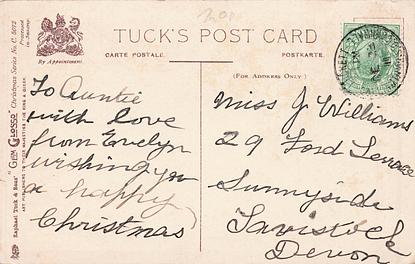 TUCK'S POST CARD
CARTE POSTALE.
POSTKARTE.
By Appointment.
(FOR ADDRESS ONLY)
Raphael Tuck & Sons' "Gem Glosso" Christmas Series No. C. 5072
ART PUBLISHERS TO THEIR MAJESTIES THE KING & QUEEN.
To Auntie
with love
from Evelyn
wishing you
a happy
Christmas
Miss J Williams
29 Ford Terrace
Sunnyside
Tavistock
Devon